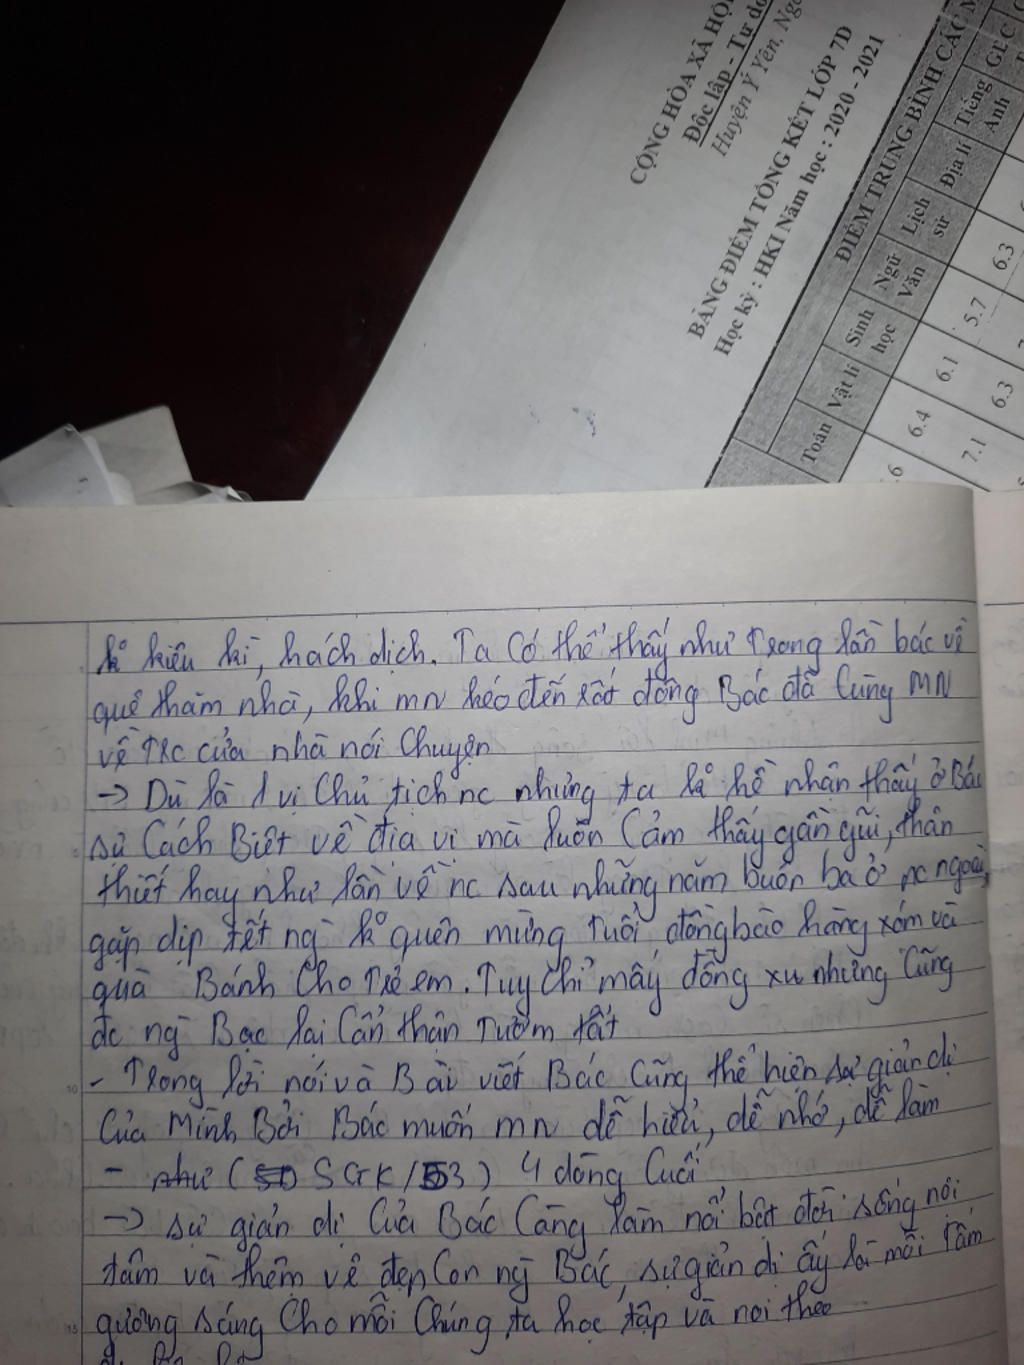 CỘNG HÒA XÃ HỘI
Độc lập - Tự do
Huyện Ý Yên, Ngà
BẢNG ĐIỂM TỔNG KẾT LỚP 7D
Học kỳ : HKI Năm học : 2020 - 2021
ĐIỂM TRUNG BÌNH CÁC M
Toán Vật lí Sinh học Ngữ Văn Lịch sử Địa lí Tiếng Anh GDC
.6 6.4 6.1 5.7 6.3
7.1 6.3
kº kiêu kì, hách dịch. Ta Có thể thấy như Trong lần bác về
quê thăm nhà, khi mn kéo đến rất đông Bác đã Cùng MN
về Trc cửa nhà nói Chuyện
-> Dù là 1 vị Chủ tịch nc nhưng ta kº hề nhận thấy ở Bác
sự Cách Biệt về địa vị mà luôn Cảm thấy gần gũi, thân
thiết hay như lần về nc sau những năm buôn ba ở nc ngoài,
gặp dịp tết ng kº quên mừng Tuổi đồng bào hàng xóm và
quà Bánh Cho Trẻ em. Tuy chỉ mấy đồng xu nhưng Cũng
đc ng Bọc lại Cẩn thận Tươm tất
- Trong lời nói và Bài viết Bác Cũng thể hiện sự giản dị
Của Mình Bởi Bác muốn mn dễ hiểu, dễ nhớ, dễ làm
- như ( SGK/53) 4 dòng Cuối
-> sự giản dị Của Bác Càng làm nổi bật đời sống nội
tâm và thêm vẻ đẹp Con ng Bác, sự giản dị ấy là mỗi Tấm
gương sáng Cho mỗi Chúng ta học tập và noi theo